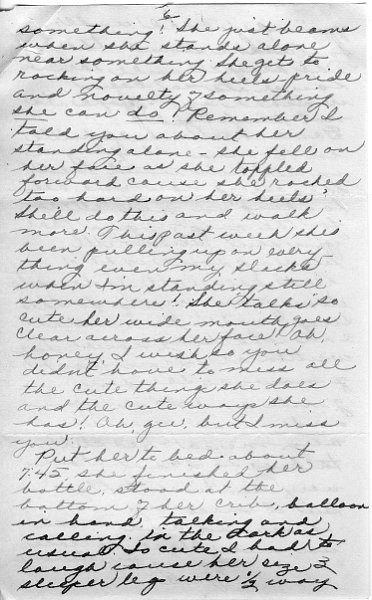 6
something! She just beams
when she stands alone
near something. She gets to
rocking on her heels pride
and novelty of something
she can do! Remember I
told you about her
standing alone – she fell on
her face as she toppled
forward cause she rocked
too hard on her heels!
She'll do this and walk
more. This past week she's
been pulling up on every-
thing even my slacks
when I'm standing still
somewhere! She talks so
cute her wide mouth goes
clear across her face! Oh,
honey, I wish so you
didn't have to miss all
the cute thing she does
and the cute ways she
has! Oh, gee, but I miss
you.
Put her to bed about
7:45, she finished her
bottle, stood at the
bottom of her crib, balloon
in hand, talking and
calling in the dark as
usual. So cute I had to
laugh cause her size 3
sleeper leg were ½ way